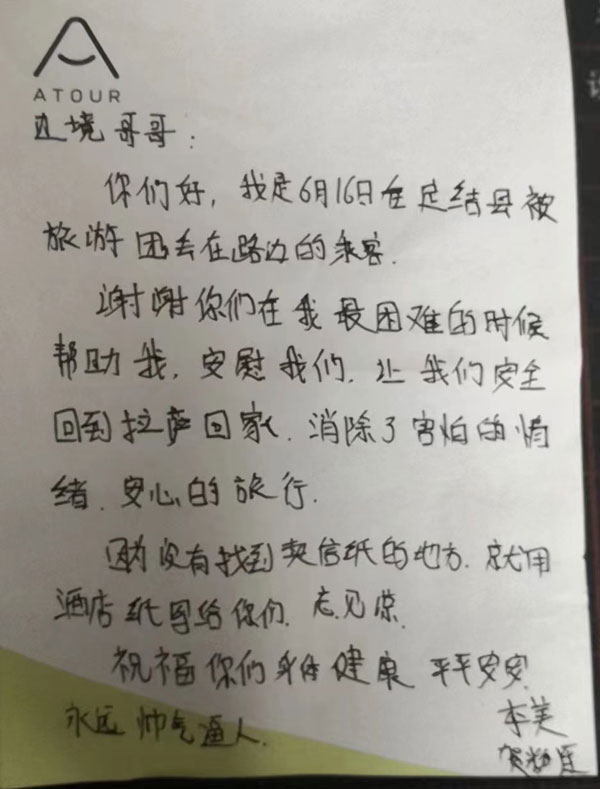 ATOUR
边境哥哥:
你们好,我是6月16日在定结县被
旅游团丢在路边的乘客.
谢谢你们在我最困难的时候
帮助我,安慰我们,让我们安全
回到拉萨回家.消除了害怕的情
绪.安心的旅行.
因为没有找到卖信纸的地方.就用
酒店纸写给你们.忘见谅.
祝福你们身体健康 平平安安
永远帅气逼人.
李美
贺